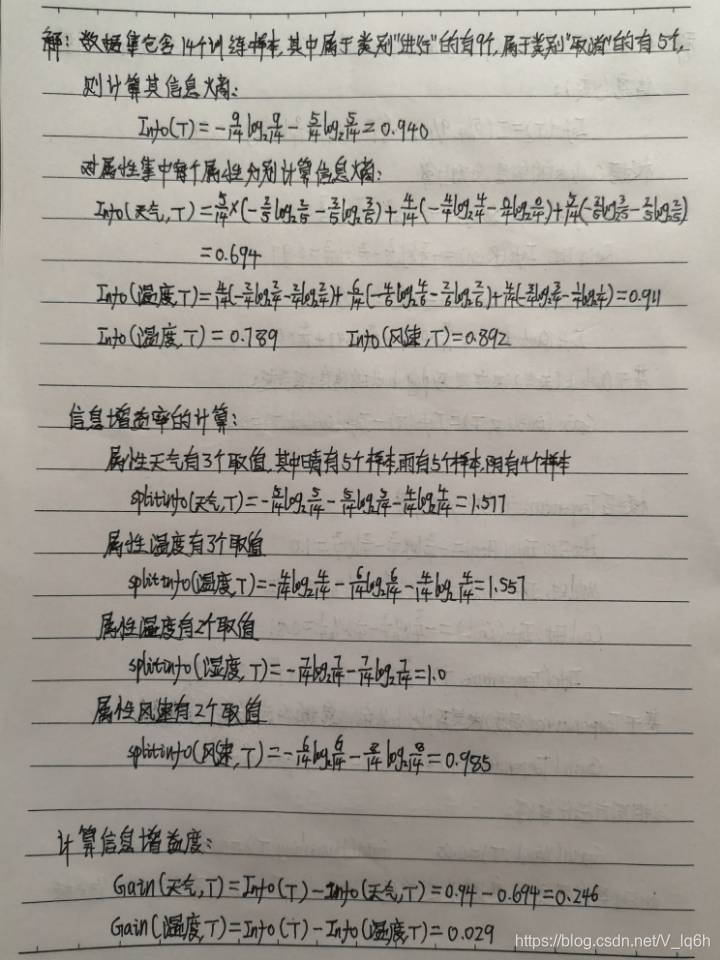 解: 数据集包含14个训练样本,其中属于类别"进行"的有9个,属于类别"取消"的有5个,
则计算其信息熵:
Info(T)=-9/14log₂9/14-5/14log₂5/14=0.940
对属性集中每个属性分别计算信息熵:
Info(天气,T)=5/14×(-2/5log₂2/5-3/5log₂3/5)+4/14(-4/4log₂4/4-0/4log₂0/4)+5/14(-3/5log₂3/5-2/5log₂2/5)
=0.694
Info(温度,T)=4/14(-2/4log₂2/4-2/4log₂2/4)+6/14(-4/6log₂4/6-2/6log₂2/6)+4/14(-3/4log₂3/4-1/4log₂1/4)=0.911
Info(湿度,T)=0.789 Info(风速,T)=0.892
信息增益率的计算:
属性天气有3个取值,其中晴有5个样本,雨有5个样本,阴有4个样本
splitinfo(天气,T)=-5/14log₂5/14-5/14log₂5/14-4/14log₂4/14=1.577
属性温度有3个取值
splitinfo(温度,T)=-4/14log₂4/14-6/14log₂6/14-4/14log₂4/14=1.557
属性湿度有2个取值
splitinfo(湿度,T)=-7/14log₂7/14-7/14log₂7/14=1.0
属性风速有2个取值
splitinfo(风速,T)=-6/14log₂6/14-8/14log₂8/14=0.985
计算信息增益度:
Gain(天气,T)=Info(T)-Info(天气,T)=0.94-0.694=0.246
Gain(温度,T)=Info(T)-Info(温度,T)=0.029
https://blog.csdn.net/V_lq6h